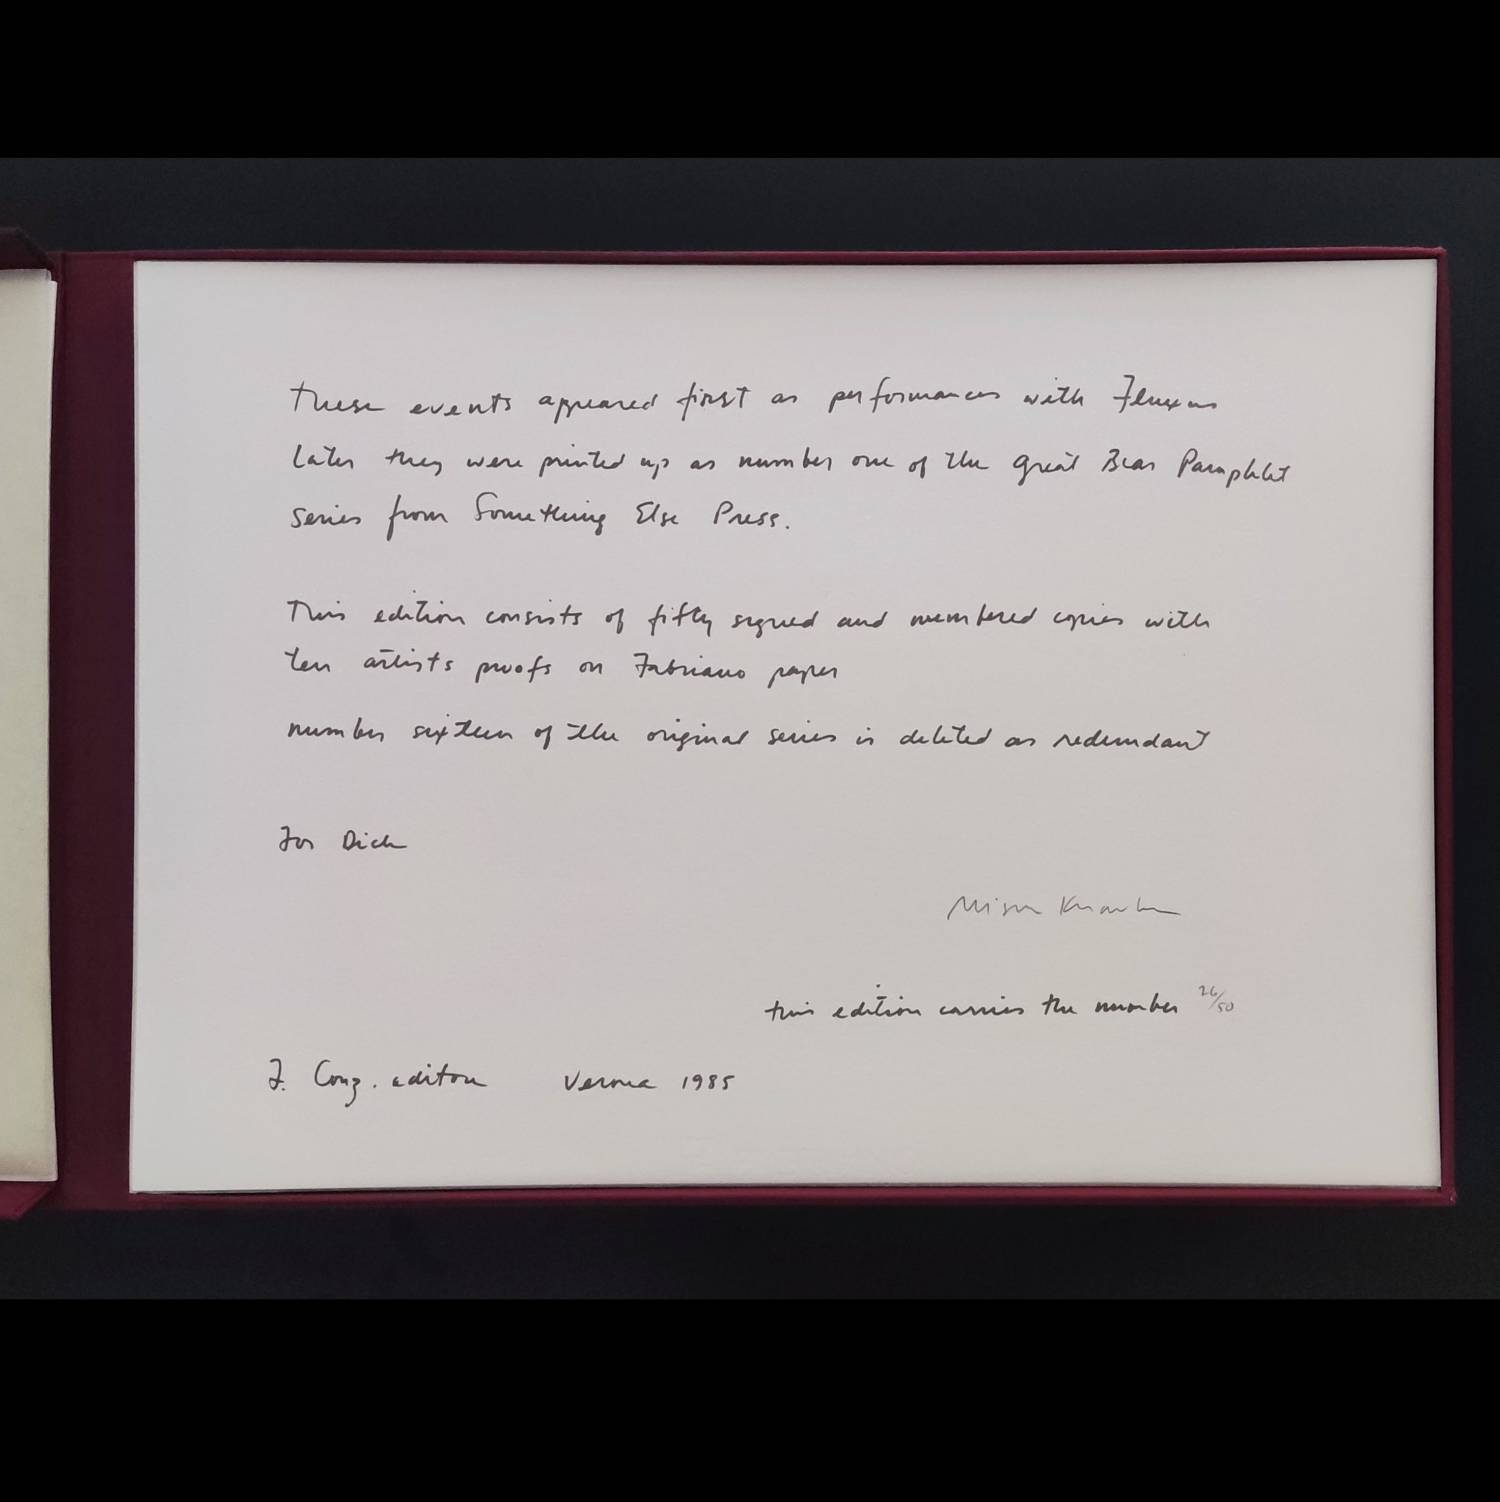 These events appeared first as performances with Fluxus
Later they were printed up as number one of the great Bear Pamphlet
series from Something Else Press.
This edition consists of fifty signed and numbered copies with
ten artists proofs on Fabriano paper
number sixteen of the original series is deleted as redundant
For Dick
Alison Knowles
this edition carries the number 26/50
F. Conz. editore Verona 1985